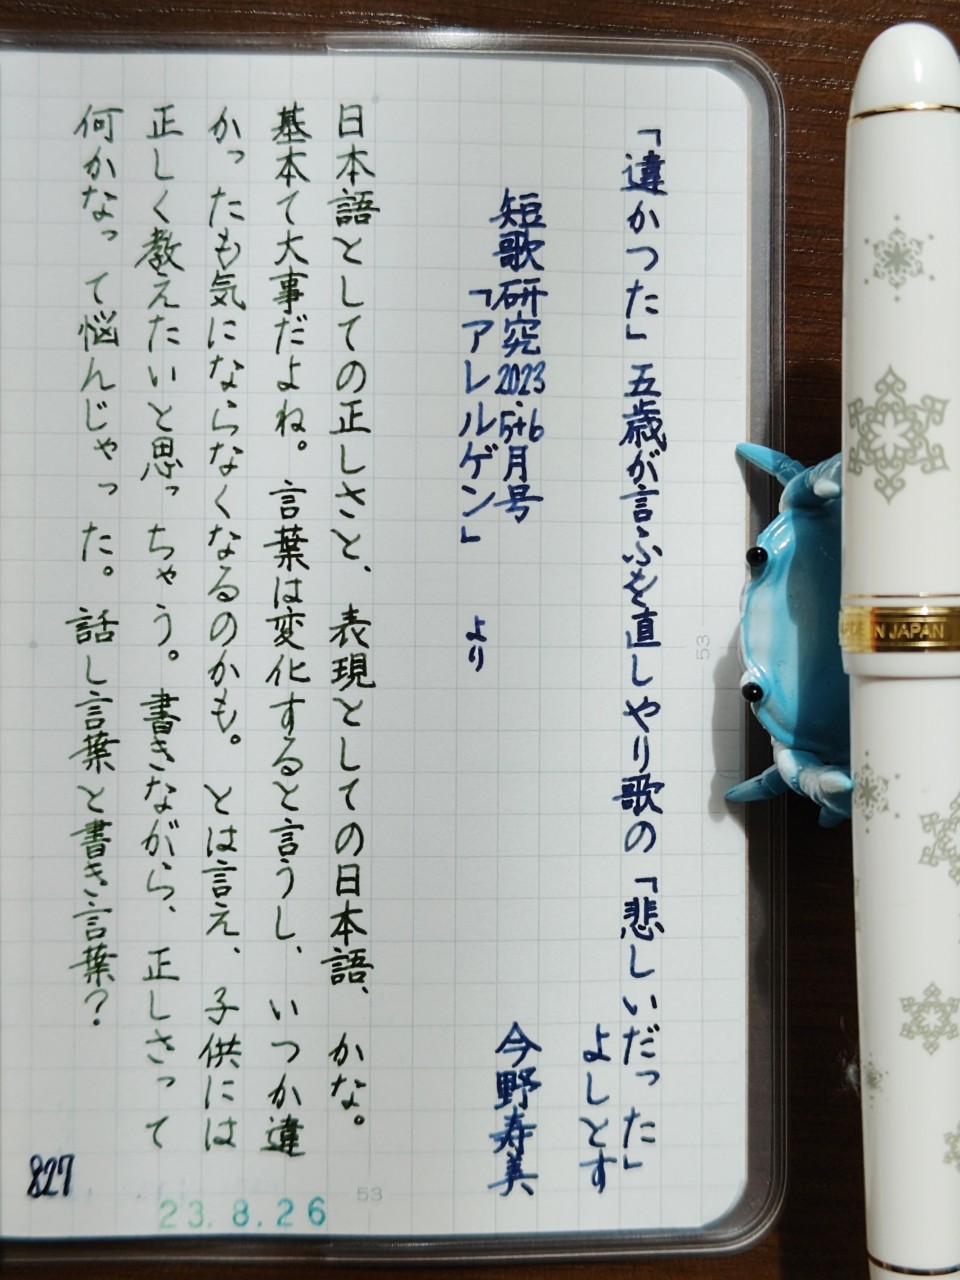 「違かつた」五歳が言ふを直しやり歌の「悲しいだった」
よしとす
短歌研究2023.5+6月号
今野寿美
「アレルゲン」より
日本語としての正しさと、表現としての日本語、かな。
基本て大事だよね。言葉は変化すると言うし、いつか違
かったも気にならなくなるのかも。とは言え、子供には
正しく教えたいと思っちゃう。書きながら、正しさって
何かなって悩んじゃった。話し言葉と書き言葉?
827
23.8.26
53
53
MADE IN JAPAN